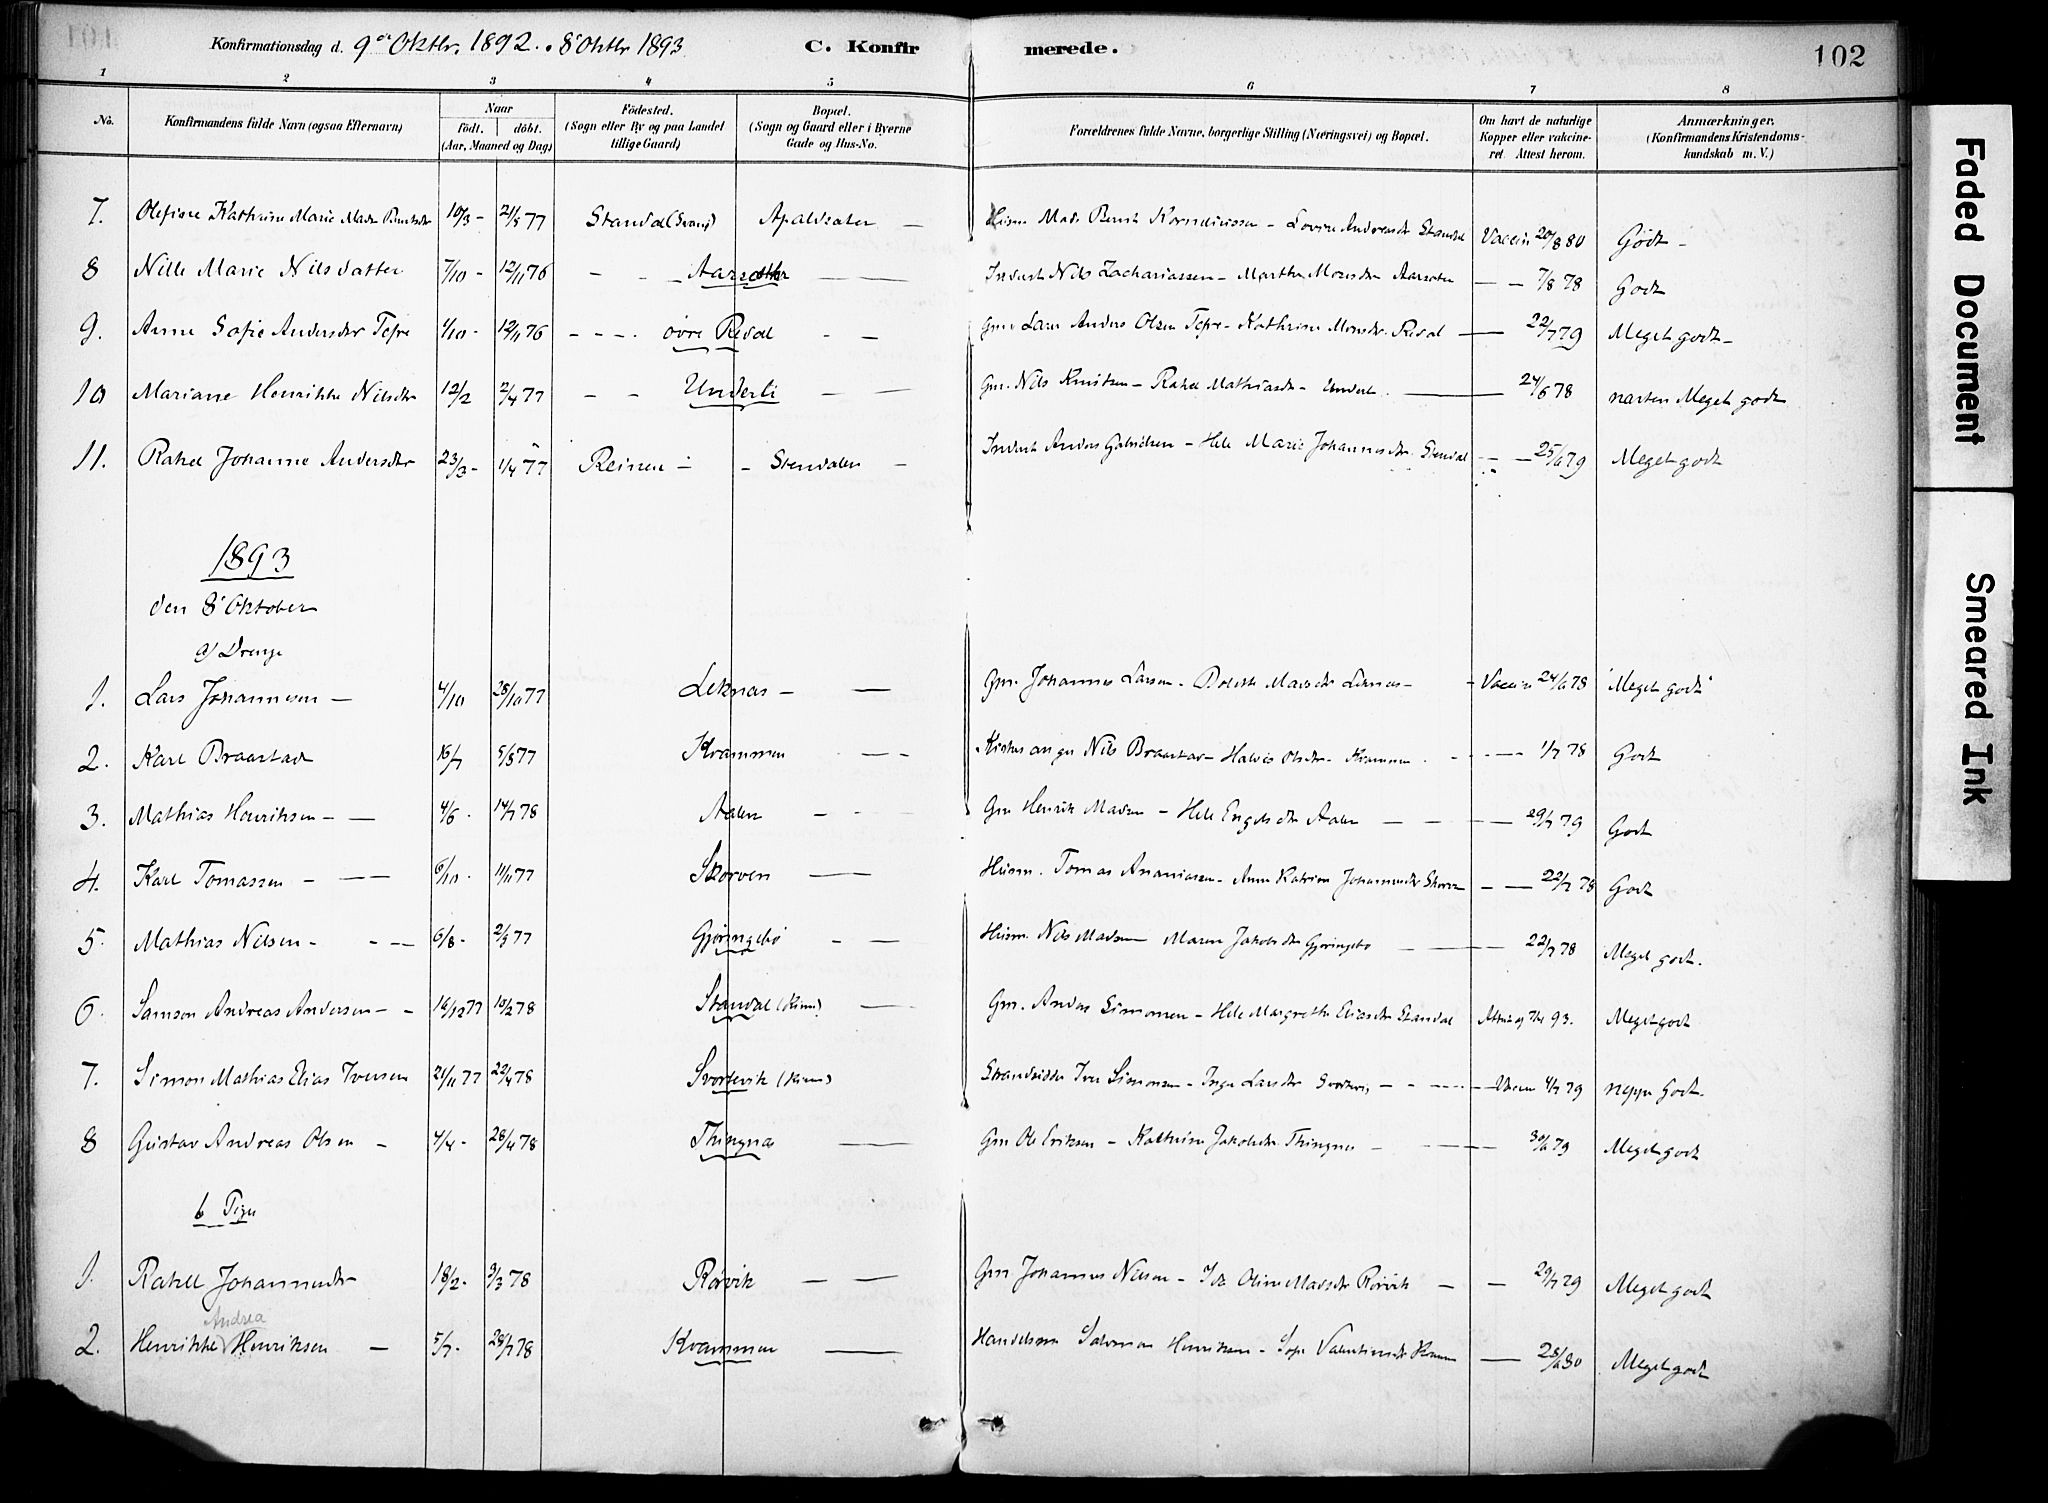 Konfirmationsdag d. 9de Oktbr. 1892. 8 Oktbr 1893
C. Konfirmerede.
102
1 2 3 4 5 6 7 8
No. Konfirmandens fulde Navn (ogsaa Efternavn) Naar født. døbt. (Aar, Maaned og Dag) Födested. (Sogn eller By og paa Landet tillige Gaard) Bopæl. (Sogn og Gaard eller i Byerne Gade og Hus-No. Forældrenes fulde Navne, borgerlige Stilling (Næringsvei) og Bopæl. Om havt de naturlige Kopper eller vaccineret. Attest herom. Anmærkninger. (Konfirmandens Kristendomskundskab m. V.)
7. Kathrine Marie 10/3 - 21/5 77 Standal Apaldsæter - Husm Mads Bernt Korneliussen - Lovise Andreasdr Standal Vaccin 20/8 80 Godt -
8 Nille Marie Nilsdatter 7/10 - 12/11 76 - - Aarsæther Inderst Nils Zachariassen - Marthe Monsdr Aarsæter - - 7/8 78 Godt
9. Anne Sofie Andersdtr Tefre 1/10 - 12/11 76 - - - øvre Revdal - - Gm. Lars Anders Olsen Tefre - Kathrine Monsdr. Revdal - 22/7 79 Meget godt -
10 Mariane Henrikke Nilsdtr 12/2 2/4 77 - - Underli - - Gm. Nils Knutsen - Rakel Mathiasdr - Underli. - 24/6 78 næsten Meget godt
11. Rakel Johanne Andersdtr 23/3 - 1/4 77 Reinen - - Stendalen - Inderst Anders - Hele Marie Johannesdr. Stendal - - 25/6 79 Meget godt
1893
den 8' Oktober
a) Drenge
1. Lars Johannesen - 4/10 28/10 77 Leknæs - - Gm. Johannes Larsen - Madsdr Leknæs - - Vaccin 24/6 78 Meget godt
2. Karl Braastad 16/7 5/8 77 Kvammen - - - Nils Braastad - Olsdr - Kvammen. - - - 1/7 78 Godt
3. Mathias Henriksen - - 4/6 - 14/7 78 Aalen - - - Gm Henrik Madsen - Hele Engelsdr Aalen - - - 29/7 79 Godt
4. Karl Tomassen - - - 6/10 - 11/11 77 Skorven - Husm. Tomas Ananiassen - Anne Katrine Johannesdr Skorven - - 22/7 78 Godt
5. Mathias Nilsen - - - 6/8 - 2/9 77 Gjøringebø - - Husm. Nils Madsen Maren Jakobsdr Gjøringebø - - 22/7 78 Meget godt.
6. Samson Andreas Andersen - - 16/12 77 10/2 78 Standal - Gm. Anders Simonsen - Hele Margrethe Eliasdr Standal 93. Meget godt
7. Simon Mathias Elias Iversen 21/11 77 22/4 78 Svortevik - Iver Simonsen - Inger Larsdr Svortevik - - - Vaccin 4/7 79 neppe Godt.
8 Gustav Andreas Olsen - 4/4 - 28/4 78 Thingnæs - Gm Ole Eriksen - Kathrine Jakobsdr Thingnes - - - 30/6 79 Meget godt
b Piger
1. Rakel Johannesdtr 18/2 - 3/3 78 Rørvik - - Gm Johannes Nilsen - Oline Madsdr Rørvik - - 29/7 79 Meget godt
Andrea
2. Henrikke Henriksen - 5/7 - 28/7 78 Kvammen - Handelsm Salomon Henriksen - Valentinsdr Kvammen - 28/6 80 Meget godt
Faded Document
Smeared Ink